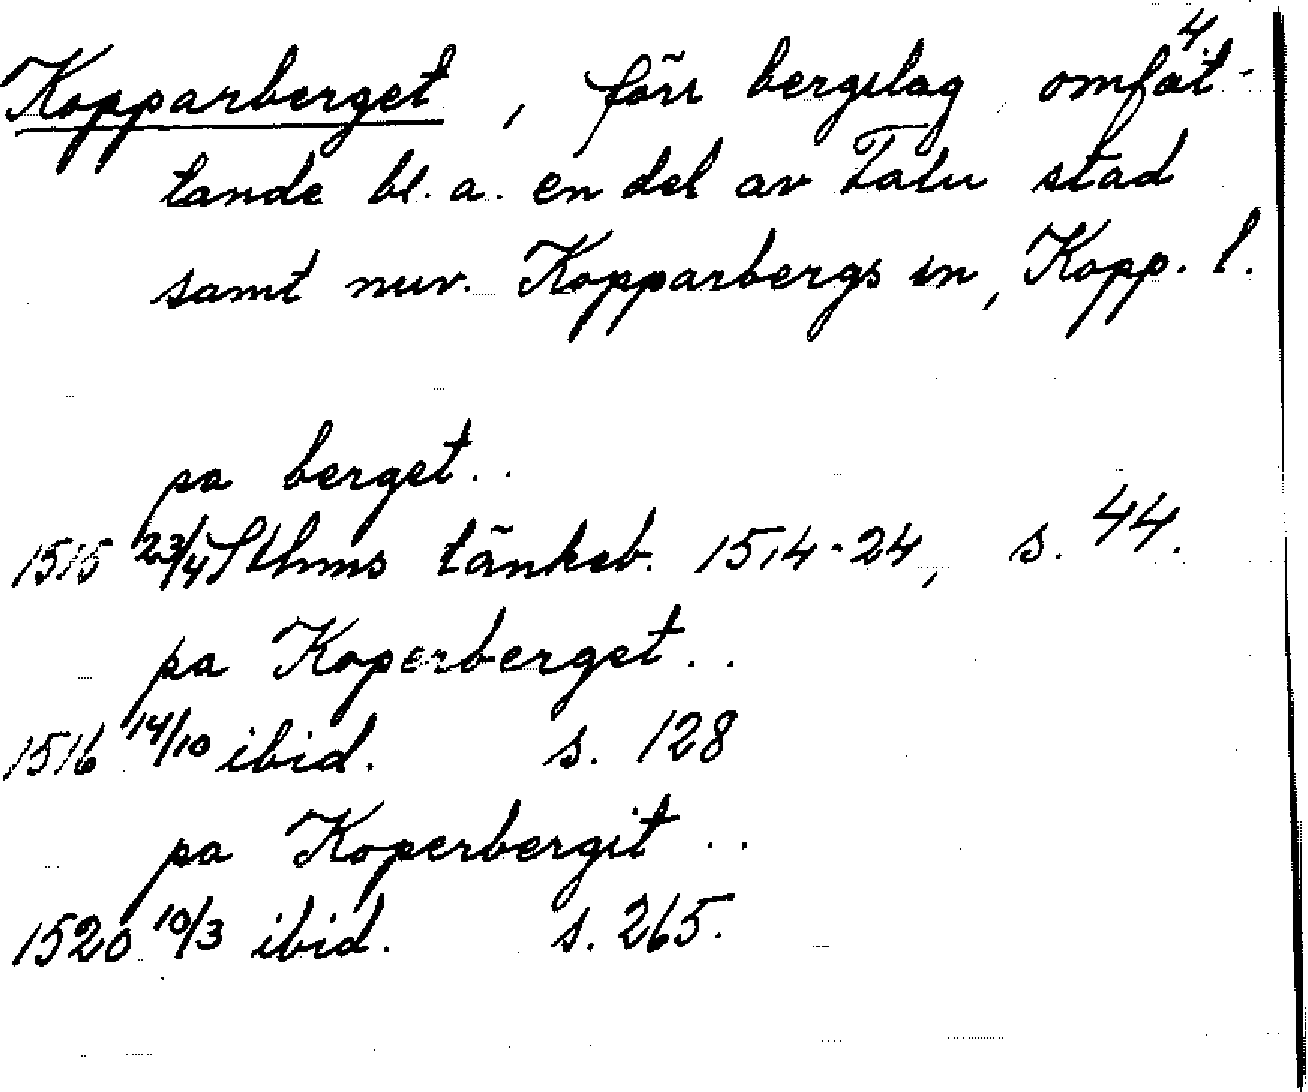 4.
Kopparberget, förr bergslag omfat-
tande bl. a. en del av Falu stad
samt nuv. Kopparbergs sn, Kopp. l.
pa berget. .
1515 23/4 Sthms tänkeb. 1514-24, s. 44.
pa Koperberget. .
1516 14/10 ibid. s. 128
pa Koperbergit . .
1520 10/3 ibid. s. 265.